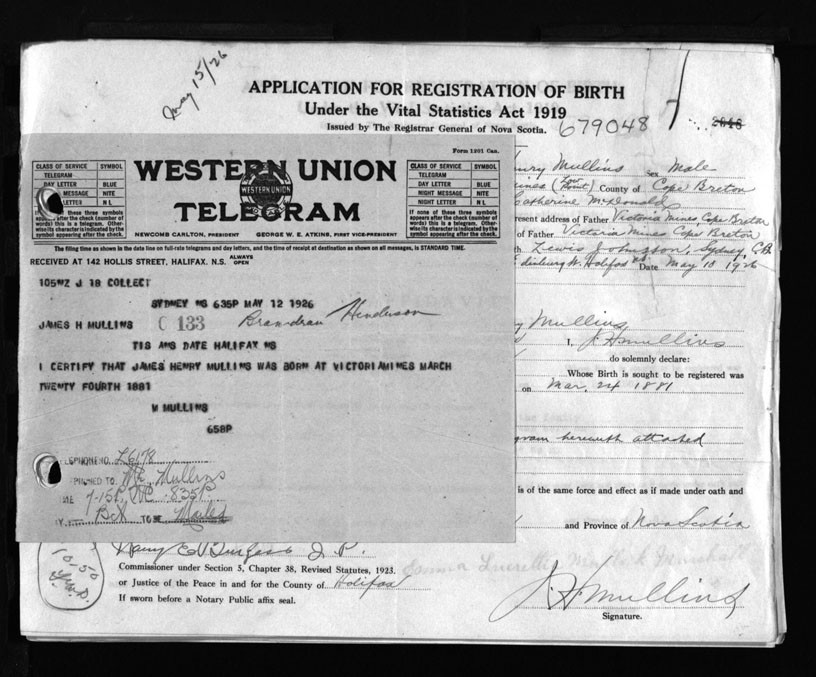 May 15/26
APPLICATION FOR REGISTRATION OF BIRTH
Under the Vital Statistics Act 1919
Issued by The Registrar General of Nova Scotia.
679048
Form 1201 Can.
CLASS OF SERVICE SYMBOL
TELEGRAM
DAY LETTER BLUE
MESSAGE NITE
LETTER N L
If none of these three symbols appears after the check (number of words) this is a telegram. Otherwise its character is indicated by the symbol appearing after the check.
WESTERN UNION
WESTERN UNION
TELEGRAM
NEWCOMB CARLTON, PRESIDENT GEORGE W. E. ATKINS, FIRST VICE-PRESIDENT
CLASS OF SERVICE SYMBOL
TELEGRAM
DAY LETTER BLUE
NIGHT MESSAGE NITE
NIGHT LETTER N L
If none of these three symbols appears after the check (number of words) this is a telegram. Otherwise its character is indicated by the symbol appearing after the check.
The filing time as shown in the date line on full-rate telegrams and day letters, and the time of receipt at destination as shown on all messages, is STANDARD TIME.
RECEIVED AT 142 HOLLIS STREET, HALIFAX. N.S. ALWAYS OPEN
105WZ J 18 COLLECT
SYDNEY NS 635P MAY 12 1926
JAMES H MULLINS C 133 Henderson
TIS ANS DATE HALIFAX NS
I CERTIFY THAT JAMES HENRY MULLINS WAS BORN AT VICTORIAMINES MARCH
TWENTY FOURTH 1881
W MULLINS
658P
L6178
Mullins
835P
TO BE Mailed
Henry Mullins Sex Male
(Low Point) County of Cape Breton
Catherine McDonald
present address of Father Victoria Mines Cape Breton
of Father Victoria Mines Cape Breton
Lewis Johnston, Sydney, C.B.
Halifax N.S. Date May 13 1926
Mullins
I, J.H. Mullins
do solemnly declare:
Whose Birth is sought to be registered was
on Mar. 24 1881
the family
herewith attached
is of the same force and effect as if made under oath and
and Province of Nova Scotia
10-50
Henry E. Burgess J.P.
Commissioner under Section 5, Chapter 38, Revised Statutes, 1923.
or Justice of the Peace in and for the County of Halifax
If sworn before a Notary Public affix seal.
J.H. Mullins
Signature.